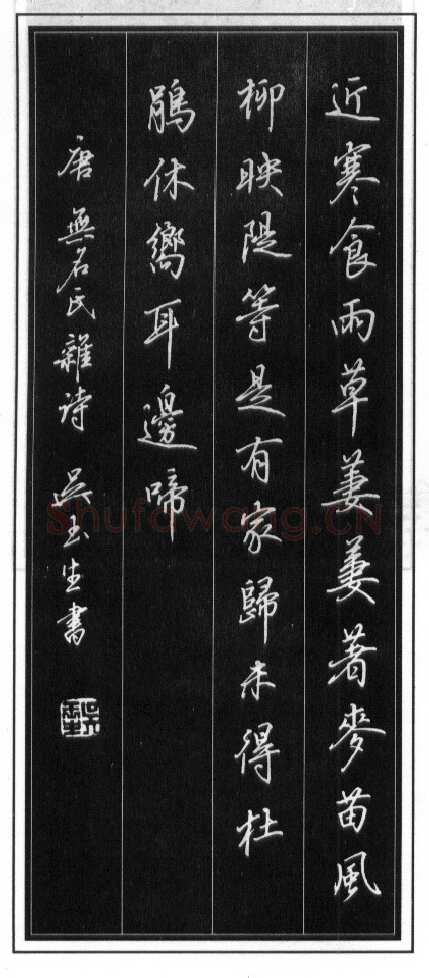 近寒食雨草萋萋著麥苗風
柳映隄等是有家歸未得杜
鵑休嚮耳邊啼
唐無名氏雜詩 吴玉生書
Shufawang.CN